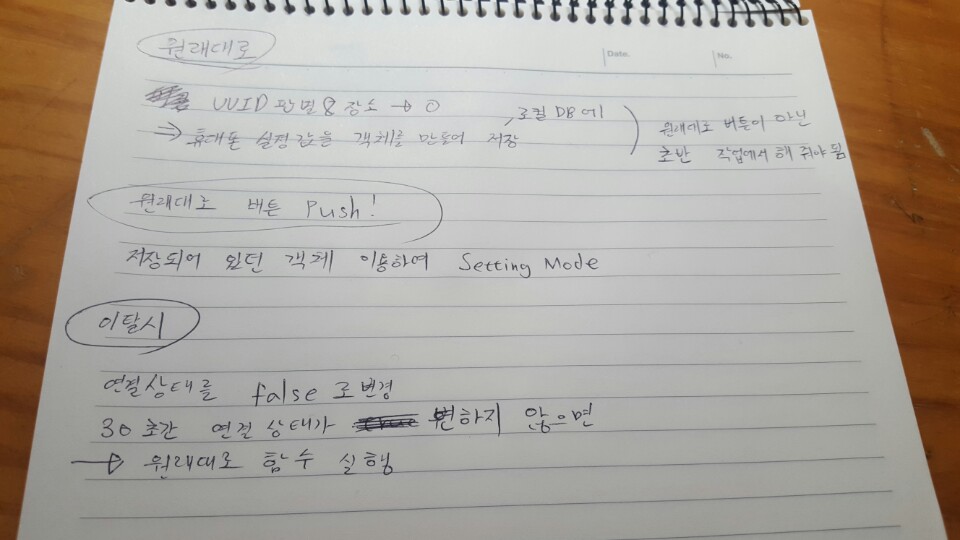 원래대로
Date.
No.
UUID 판별 & 장소 → 0
⇒ 휴대폰 설정값을 객체를 만들어 저장
, 로컬 DB에
원래대로 버튼이 아닌
초반 작업에서 해 줘야 됨
원래대로 버튼 Push!
저장되어 있던 객체 이용하여 Setting Mode
이탈시
연결상태를 false 로 변경
30 초간 연결 상태가 변하지 않으면
→ 원래대로 함수 실행